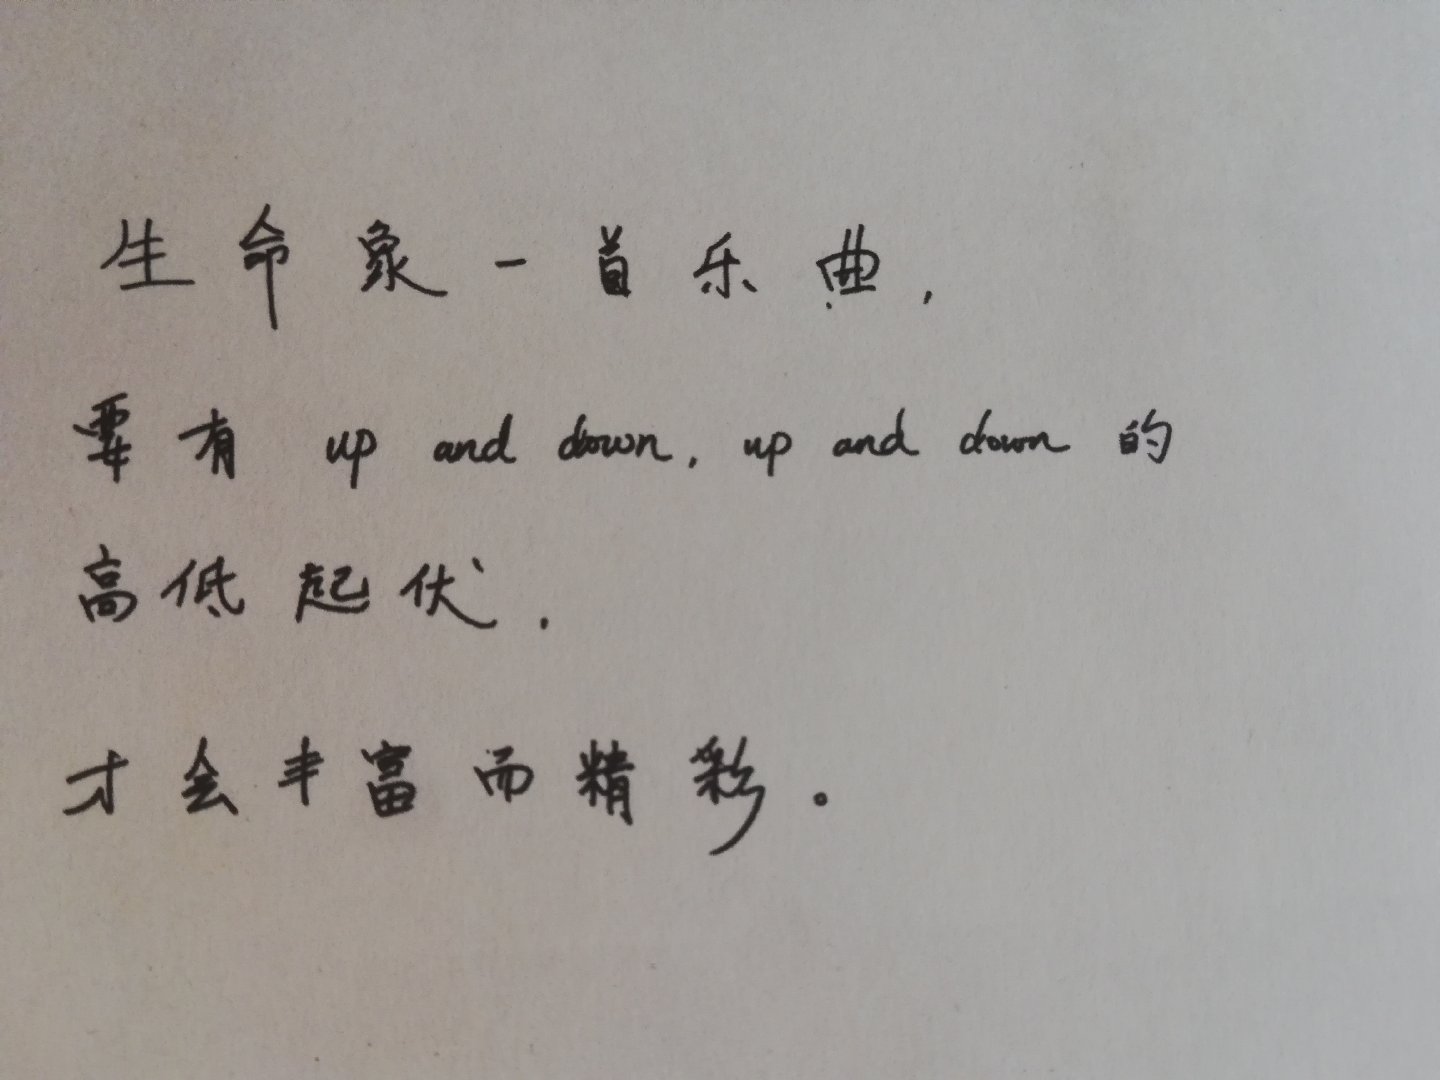 生命象一首乐曲,
要有 up and down, up and down 的
高低起伏.
才会丰富而精彩。